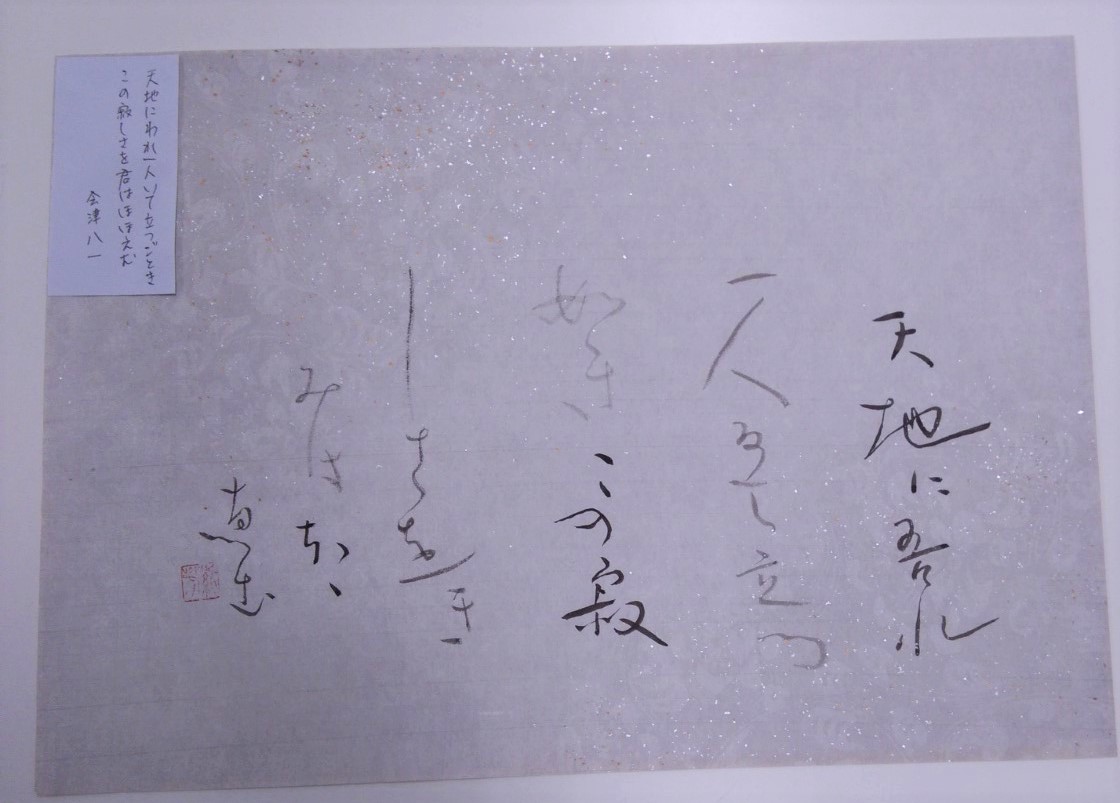 天地に吾れ
一人ゐて立つ
如きこの寂
しさをき
みはほゝ
天地にわれ一人いて立つごとき
この寂しさを君はほほえむ
会津八一